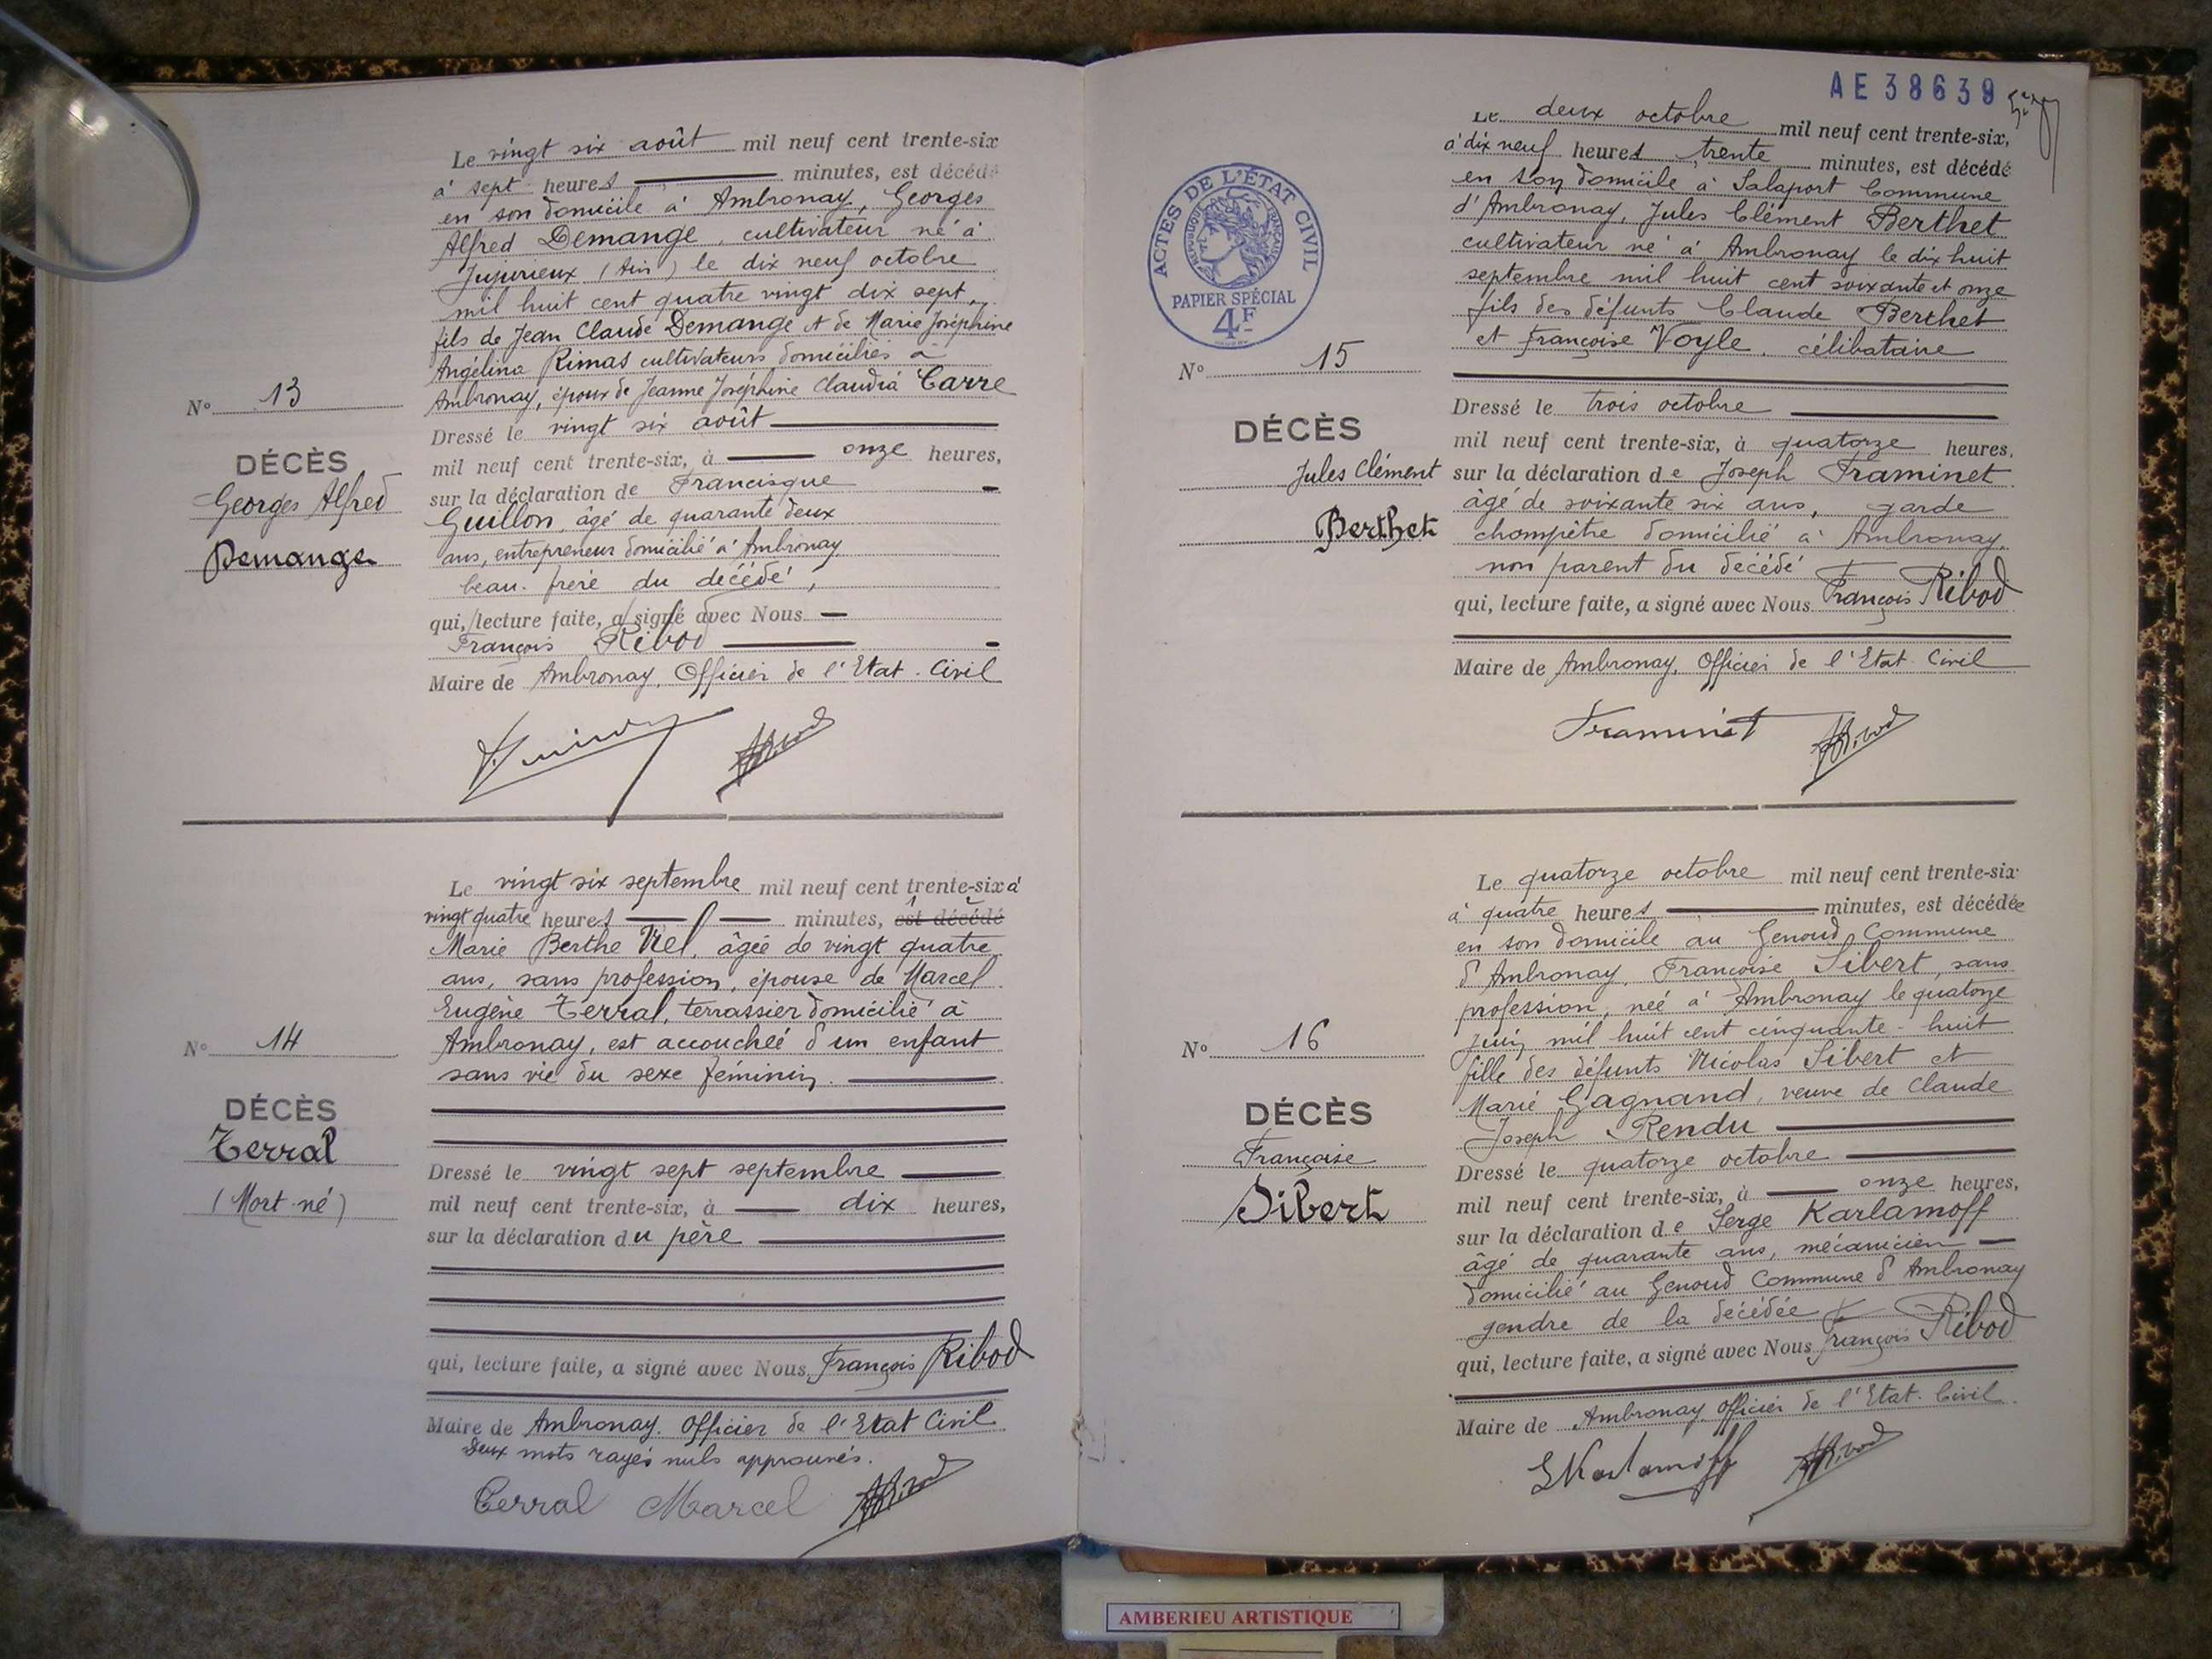 Le vingt six août mil neuf cent trente-six
à sept heures minutes, est décédé
en son domicile à Ambronay, Georges
Alfred Demange, cultivateur né à
Jujurieux (Ain) le dix neuf octobre
mil huit cent quatre vingt dix sept,
fils de Jean Claude Demange et de Marie Joséphine
Angélina Rimas cultivateurs domiciliés à
Ambronay, époux de Jeanne Joséphine Claudia Carre
N° 13
DÉCÈS
Georges Alfred
Demange
Dressé le vingt six août
mil neuf cent trente-six, à onze heures,
sur la déclaration de Francisque
Guillon, âgé de quarante deux
ans, entrepreneur domicilié à Ambronay
beau-frère du décédé,
qui, lecture faite, a signé avec Nous
François Ribod
Maire de Ambronay, Officier de l'Etat-Civil
Le vingt six septembre mil neuf cent trente-six à
vingt quatre heures minutes, est décédé
Marie Berthe Viel, âgée de vingt quatre
ans, sans profession, épouse de Marcel
Eugène Terral, terrassier domicilié à
Ambronay, est accouchée d'un enfant
sans vie du sexe féminin.
N° 14
DÉCÈS
Terral
(Mort-né)
Dressé le vingt sept septembre
mil neuf cent trente-six, à dix heures,
sur la déclaration du père
qui, lecture faite, a signé avec Nous, François Ribod
Maire de Ambronay, Officier de l'Etat Civil
Deux mots rayés nuls approuvés.
Terral Marcel Ribod
AE 38639
Le deux octobre mil neuf cent trente-six,
à dix neuf heures trente minutes, est décédé
en son domicile à Salaport Commune
d'Ambronay, Jules Clément Berthet
cultivateur né à Ambronay le dix huit
septembre mil huit cent soixante et onze
fils des défunts Claude Berthet
et Françoise Voyle, célibataire
ACTES DE L'ÉTAT CIVIL
RÉPUBLIQUE FRANÇAISE
PAPIER SPÉCIAL
4F
N° 15
DÉCÈS
Jules Clément
Berthet
Dressé le trois octobre
mil neuf cent trente-six, à quatorze heures,
sur la déclaration de Joseph Framinet
âgé de soixante six ans, garde
champêtre domicilié à Ambronay,
non parent du décédé
qui, lecture faite, a signé avec Nous François Ribod
Maire de Ambronay, Officier de l'Etat-Civil
Framinet Ribod
Le quatorze octobre mil neuf cent trente-six
à quatre heures minutes, est décédée
en son domicile au Genoud Commune
d'Ambronay, Françoise Sibert, sans
profession, née à Ambronay le quatorze
juin mil huit cent cinquante-huit
fille des défunts Nicolas Sibert et
Marie Gagnand, veuve de Claude
Joseph Rendu
N° 16
DÉCÈS
Françoise
Sibert
Dressé le quatorze octobre
mil neuf cent trente-six, à onze heures,
sur la déclaration de Serge Karlamoff
âgé de quarante ans, mécanicien
domicilié au Genoud Commune d'Ambronay
gendre de la décédée
qui, lecture faite, a signé avec Nous François Ribod
Maire de Ambronay, Officier de l'Etat-Civil
SKarlamoff Ribod
AMBERIEU ARTISTIQUE